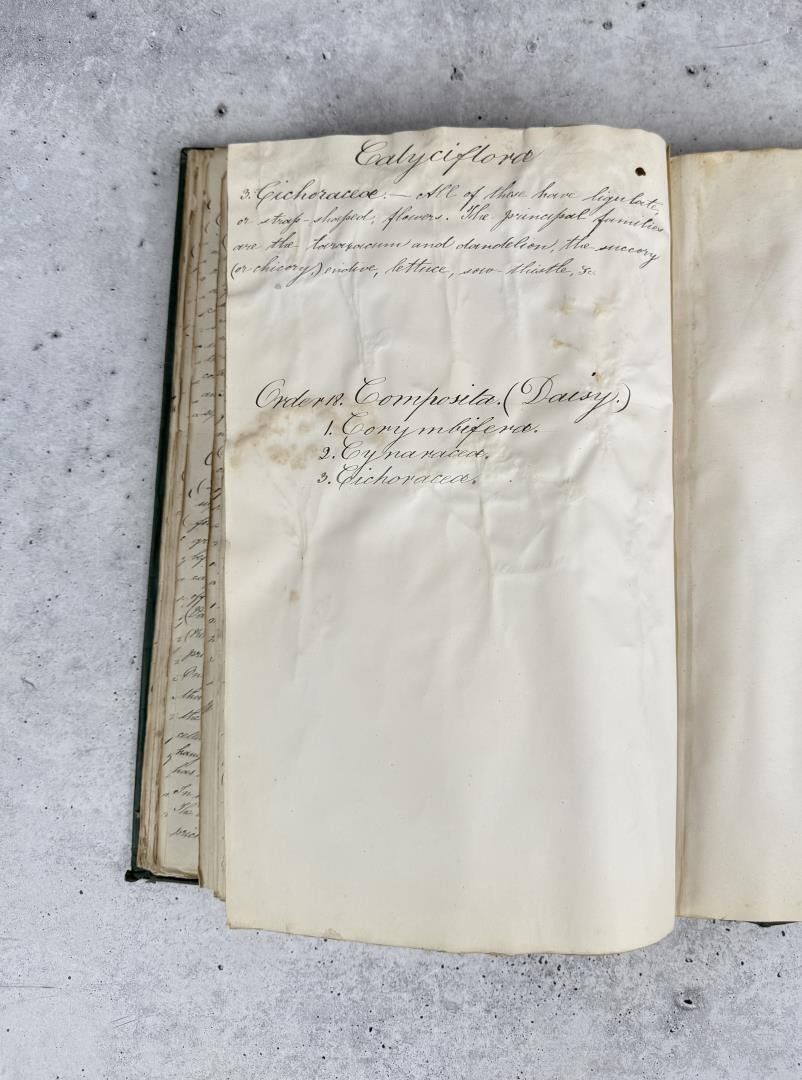 Calyciflora
3. Cichoraceæ. — All of these have ligulate,
or strap-shaped, flowers. The principal families
are the taraxacum and dandelion, the succory
(or chicory,) endive, lettuce, sow-thistle, &c
Order 18. Compositæ. (Daisy.)
1. Corymbiferæ.
2. Cynaraceæ.
3. Cichoraceæ.